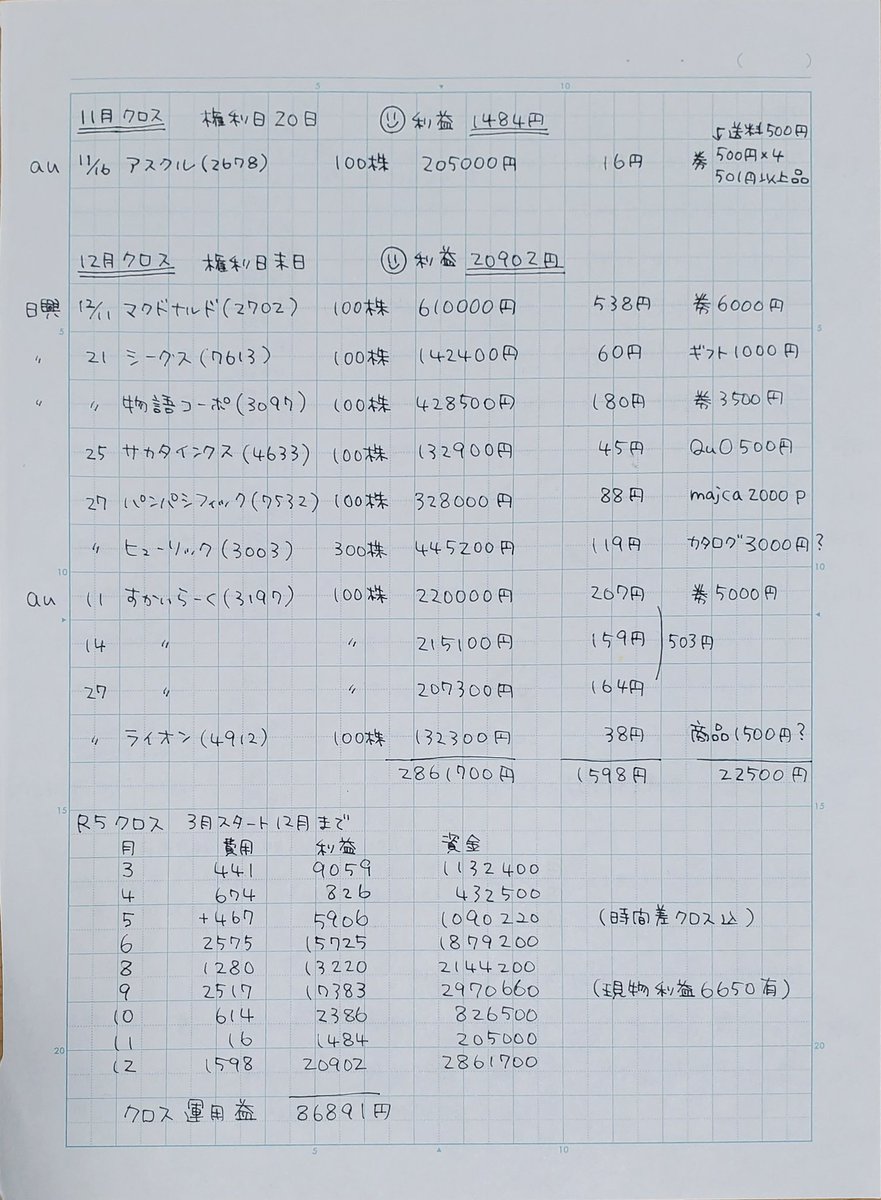 ( )
5 10
11月クロス 権利日20日 利益 1484円 ↓送料500円
au 11/16 アスクル(2678) 100株 205000円 16円 券 500円×4
501円以上品
12月クロス 権利日末日 利益 20902円
日興 12/11 マクドナルド(2702) 100株 610000円 538円 券6000円
5 5
〃 21 シーグス(7613) 100株 142400円 60円 ギフト1000円
〃 〃 物語コーポ(3097) 100株 428500円 180円 券3500円
25 サカタインクス(4633) 100株 132900円 45円 QuO500円
27 パンパシフィック(7532) 100株 328000円 88円 majca2000p
〃 ヒューリック(3003) 300株 445200円 119円 カタログ3000円?
10 10
au 11 すかいらーく(3197) 100株 220000円 207円 券5000円
14 〃 〃 215100円 159円 503円
27 〃 〃 207300円 164円
〃 ライオン(4912) 100株 132300円 38円 商品1500円?
2861700円 1598円 22500円
15 15
R5クロス 3月スタート12月まで
月 費用 利益 資金
3 441 9059 1132400
4 674 826 432500
5 +467 5906 1090220 (時間差クロス込)
6 2575 15725 1879200
8 1280 13220 2144200
9 2517 17383 2970660 (現物利益6650有)
10 614 2386 826500
11 16 1484 205000
20 20
12 1598 20902 2861700
クロス運用益 86891円
5 10